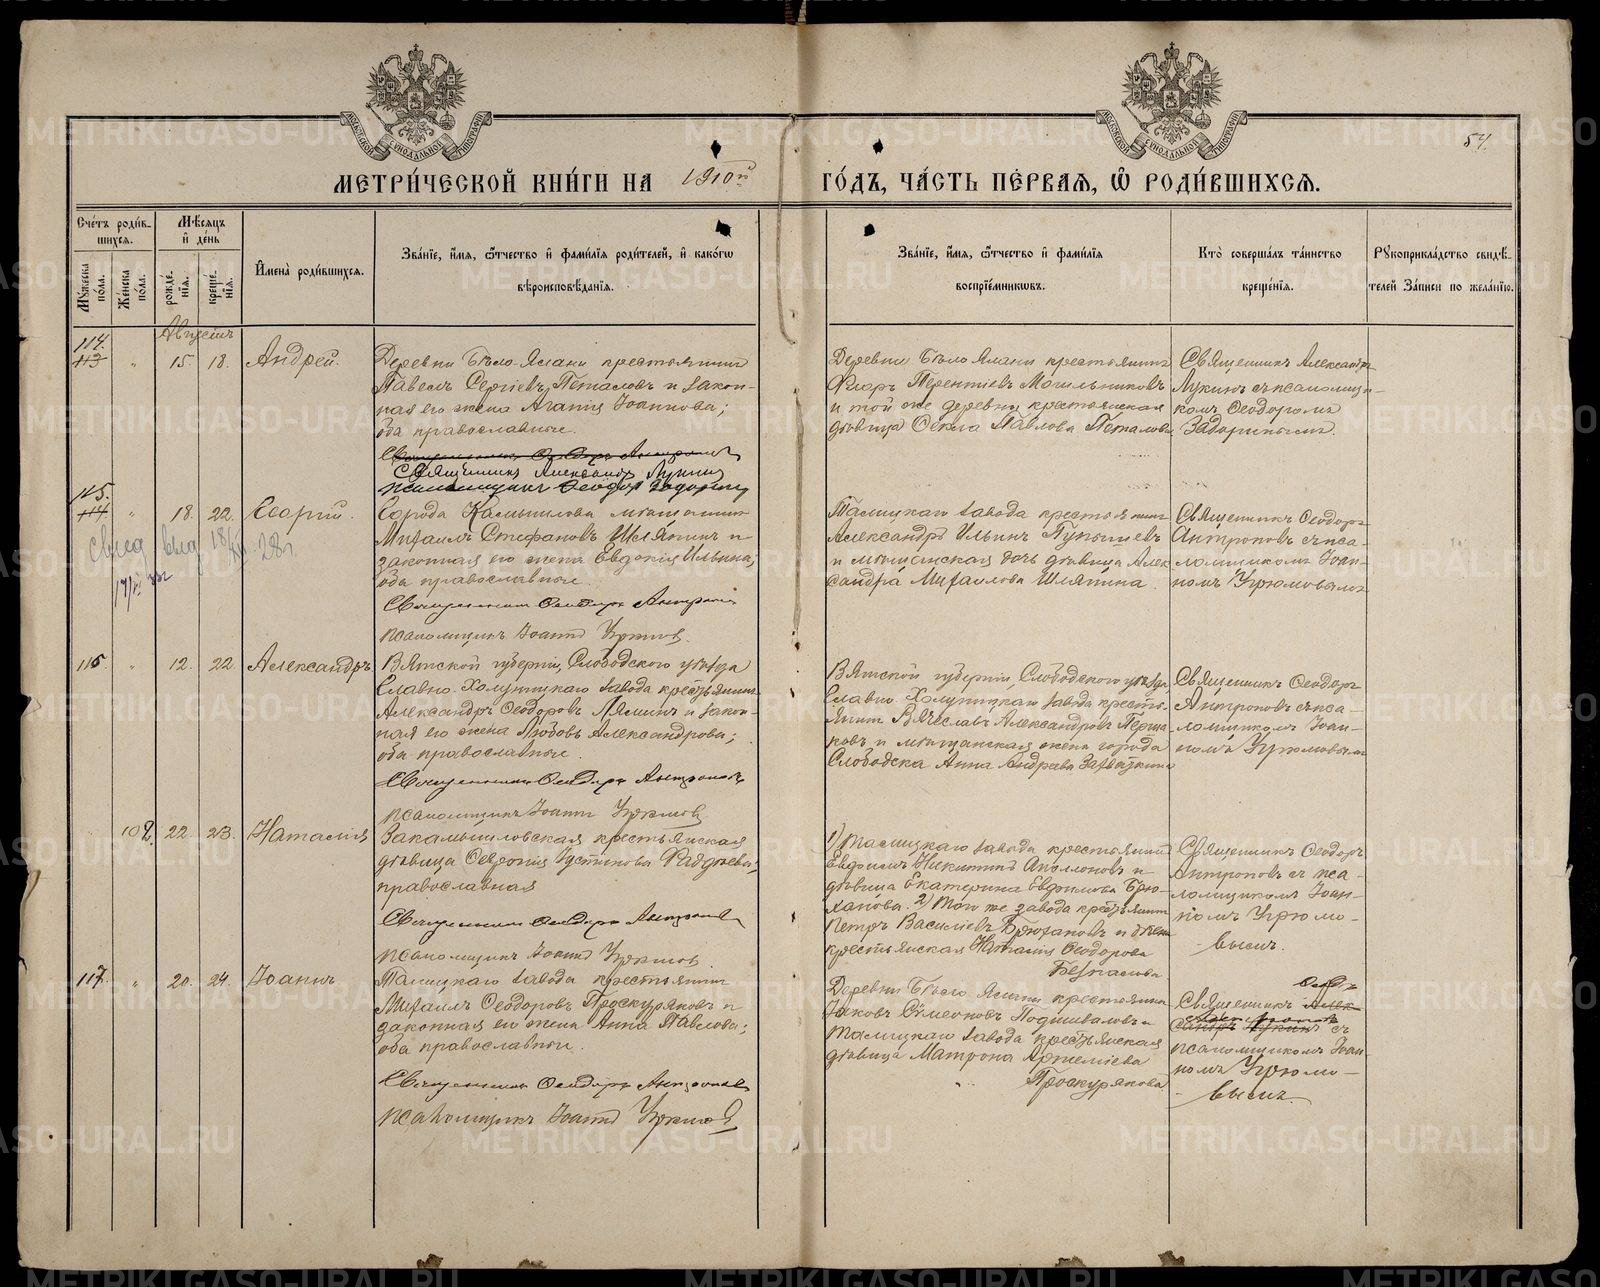 МОСКОВСКОЙ СѴНОДАЛЬНОЙ ТИПОГРАФІИ
МОСКОВСКОЙ СѴНОДАЛЬНОЙ ТИПОГРАФІИ
54.
МЕТРИ́ЧЕСКОЙ КНИ́ГИ НА 1910й ГО́ДЪ, ЧА́СТЬ ПЕ́РВАЯ, Ѡ РОДИ́ВШИХСЯ.
Сче́тъ роди́в-
шихся.
Мѣсяцъ
и день
Мужеска пола.
Женска пола.
рожде́-
нія.
креще́-
нія.
Имена̀ роди́вшихся.
Зва́нїе, и́мя, ѻ́тчество и фами́лїя роди́телей, и како́гѡ
вѣроисповѣ́данїя.
Зва́нїе, и́мя, ѻ́тчество и фами́лїя
воспрїе́мниковъ.
Кто̀ соверша́лъ та́инство
креще́нїя.
Рукоприкла́дство свидѣ́-
телей За́писи по жела́нїю.
Августъ
114.
113 " 15. 18. Андрей.
Деревни Бѣло-Ялани крестьянинъ
Павелъ Сергіевъ Петаловъ и закон-
ная его жена Агапія Іоаннова;
оба православные.
Священникъ Александръ Лукинъ
Псаломщикъ Ѳеодоръ Задоринъ
Деревни Бѣло Ялани крестьянинъ
Флоръ Терентіевъ Могильниковъ
и той же деревни крестьянская
дѣвица Ѳекла Павлова Петалова
Священникъ Александръ
Лукинъ съ псаломщи-
комъ Ѳеодоромъ
Задоринымъ.
115.
114 " 18. 22. Георгій.
Города Камышлова мѣщанинъ
Михаилъ Стефановъ Шляпинъ и
законная его жена Евдокія Ильина;
оба православные.
Священникъ Ѳеодоръ Антроповъ
Псаломщикъ Іоаннъ Угрюмовъ.
Талицкаго завода крестьянинъ
Александръ Ильинъ Пупышевъ
и мѣщанская дочь дѣвица Алек
сандра Михаилова Шляпина.
Священникъ Ѳеодоръ
Антроповъ съ пса-
ломщикомъ Іоан-
номъ Угрюмовымъ
28 г.
116. " 12. 22. Александръ
Вятской губерніи, Слободского уѣзда
Главно-Холуницкаго завода крестьянинъ
Александръ Ѳеодоровъ Лялинъ и закон-
ная его жена Любовь Александрова;
оба православные.
Священникъ Ѳеодоръ Антроповъ
Псаломщикъ Іоаннъ Угрюмовъ
Вятской губерніи, Слободского уѣзда,
Главно-Холуницкаго завода кресть-
янинъ Вячеславъ Александровъ Перша
ковъ и мѣщанская жена города
Слободска Анна Андреева
Священникъ Ѳеодоръ
Антроповъ съ пса-
ломщикомъ Іоан-
номъ Угрюмовымъ
102. 22. 23. Наталія
Закамышловская крестьянская
дѣвица Ѳевронія Іустинова
православная
Священникъ Ѳеодоръ Антроповъ
Псаломщикъ Іоаннъ Угрюмовъ
1) Талицкаго завода крестьянинъ
Евфимъ Никитинъ Аполоновъ и
дѣвица Екатерина Евфимова Брю-
ханова. 2) Того же завода крестьянинъ
Петръ Василіевъ Брюхановъ и дѣвица
крестьянская Наталія Ѳеодорова
Безпалова
Священникъ Ѳеодоръ
Антроповъ съ пса-
ломщикомъ Іоан-
номъ Угрюмо-
вымъ.
117. " 20. 24. Іоаннъ
Талицкаго завода крестьянинъ
Михаилъ Ѳеодоровъ Проскуряковъ и
законная его жена Анна Павлова;
оба православные.
Священникъ Ѳеодоръ Антроповъ
Псаломщикъ Іоаннъ Угрюмовъ
Деревни Бѣло Ялани крестьянинъ
Іаковъ Симеоновъ Подшиваловъ и
Талицкаго завода крестьянская
дѣвица Матрона Артеміева
Проскурякова
Священникъ Алек-
сандръ Лукинъ съ
псаломщикомъ Іоан-
номъ Угрюмо-
вымъ.
METRIKI.GASO-URAL.RU